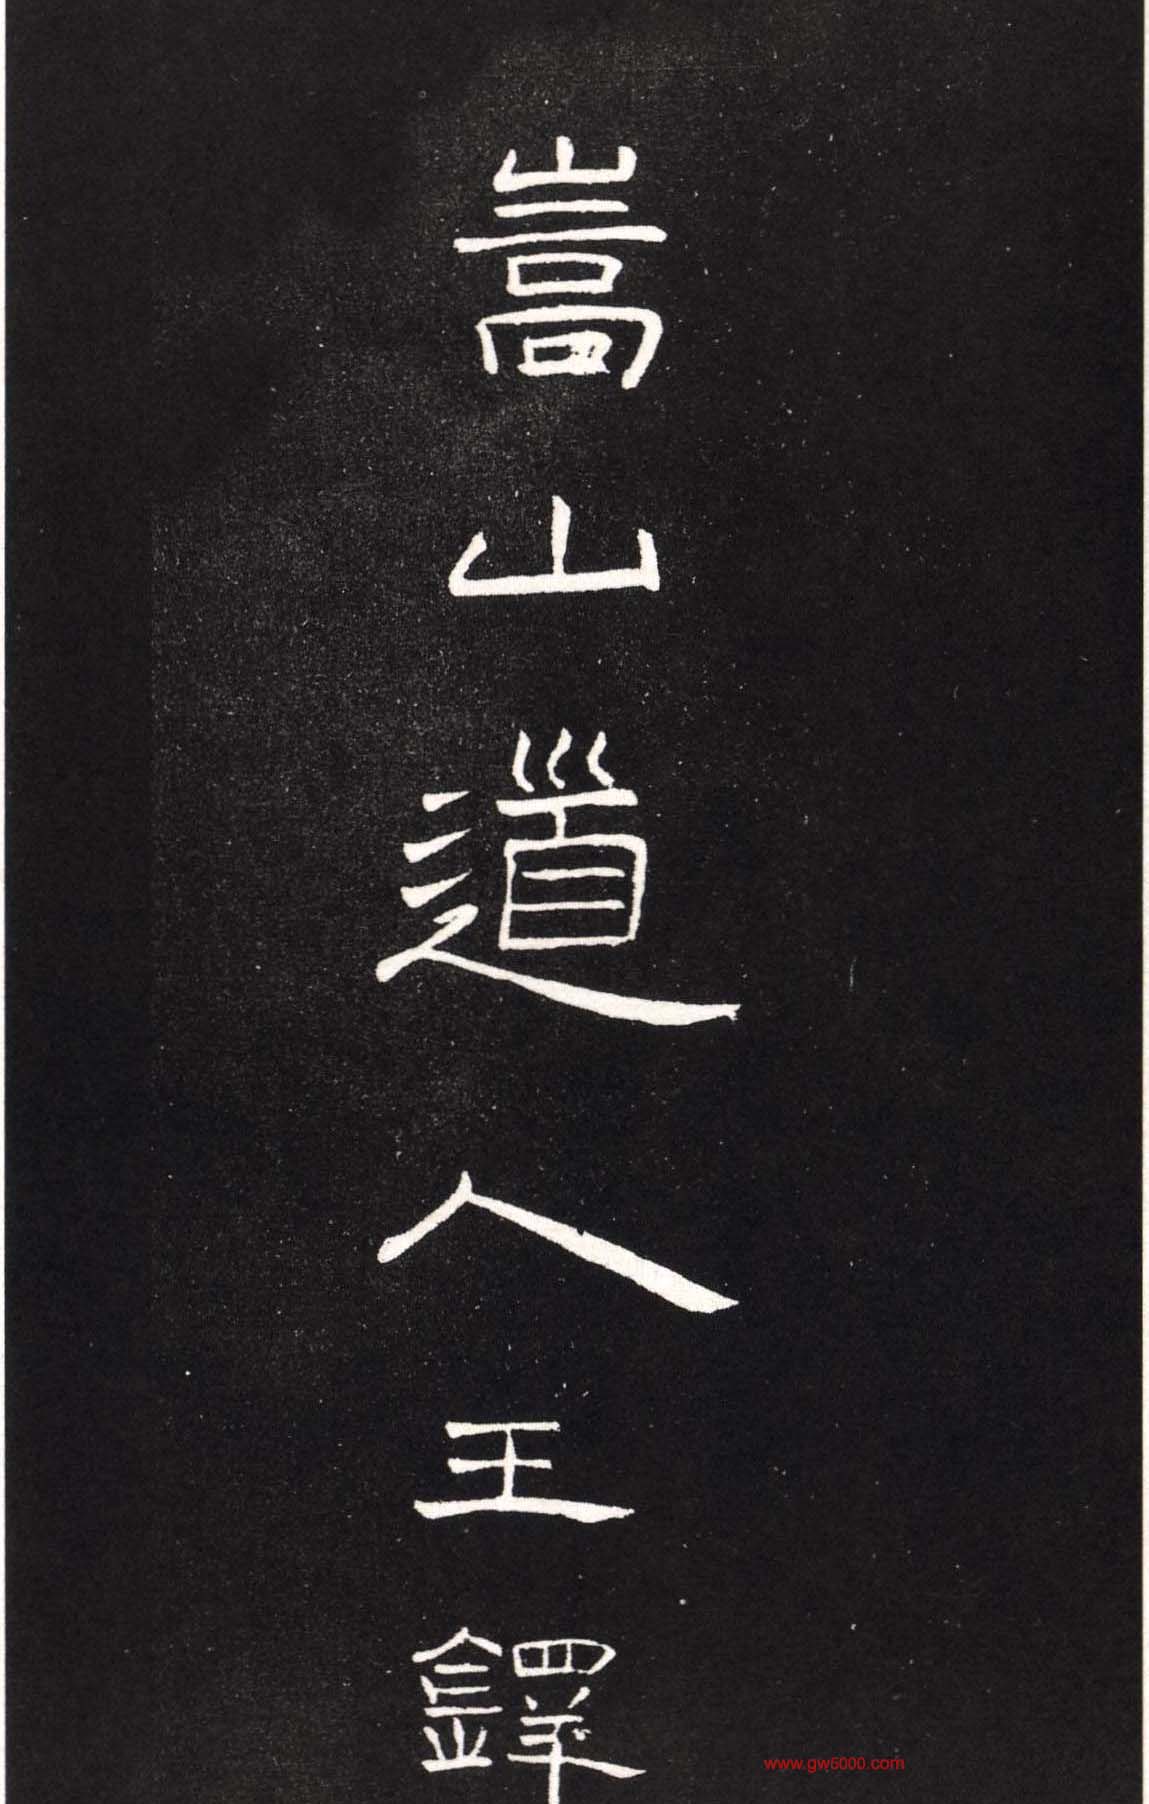 嵩山道人王鐸
www.gw5000.com